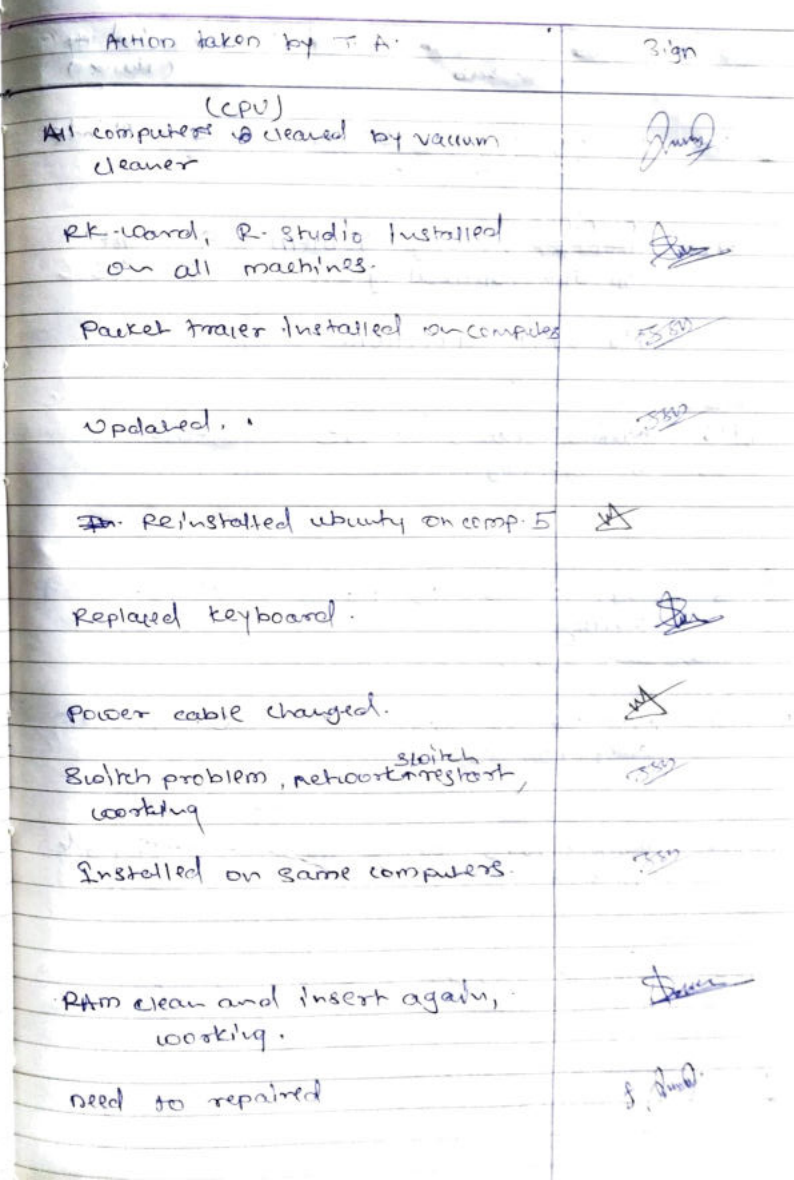 Action taken by T.A. Sign
(CPU)
All computers cleaned by vaccum
cleaner
RK-Ward, R-Studio Installed
on all machines.
Packet tracer installed on computer
Updated.
Reinstalled ubuntu on comp. 5
Replaced keyboard.
Power cable changed.
switch
Switch problem, network restart,
working
Installed on same computers.
RAM clean and insert again,
working.
need to repaired